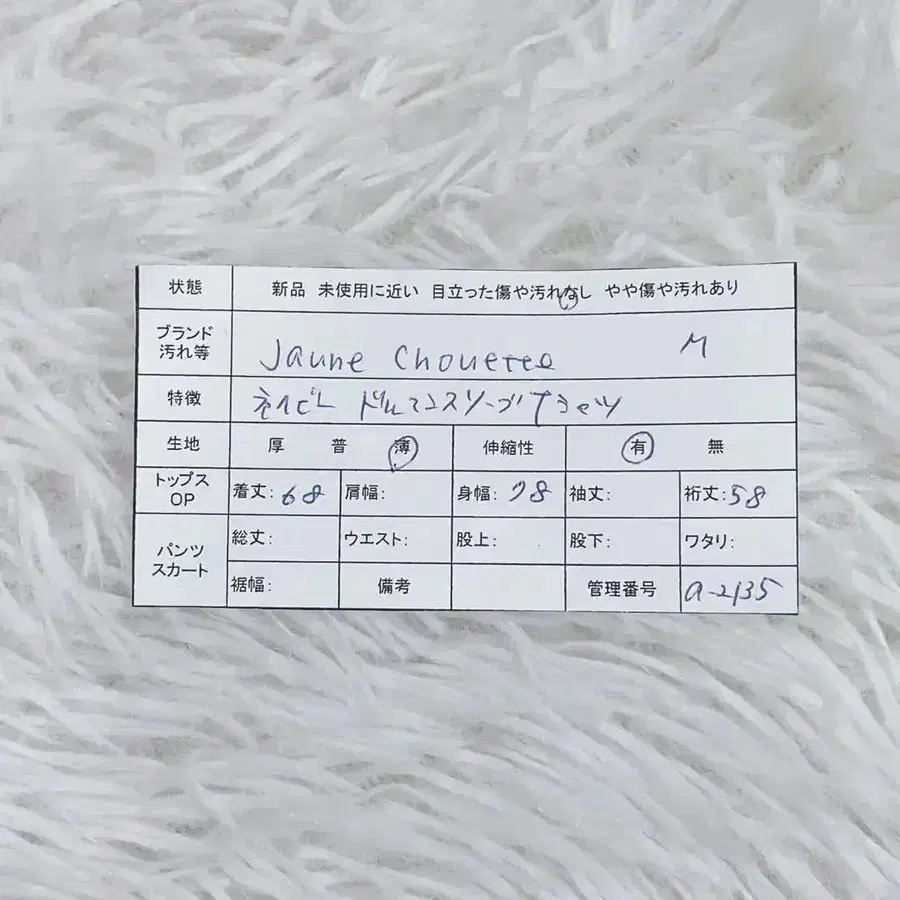 状態 新品 未使用に近い 目立った傷や汚れなし やや傷や汚れあり
ブランド 汚れ等 Jaune Chouette M
特徴 ネイビー ドルマンスリーブTシャツ
生地 厚 普 薄 伸縮性 有 無
トップス OP 着丈:68 肩幅: 身幅:78 袖丈: 裄丈:58
パンツ スカート 総丈: ウエスト: 股上: 股下: ワタリ:
裾幅: 備考 管理番号 a-2135